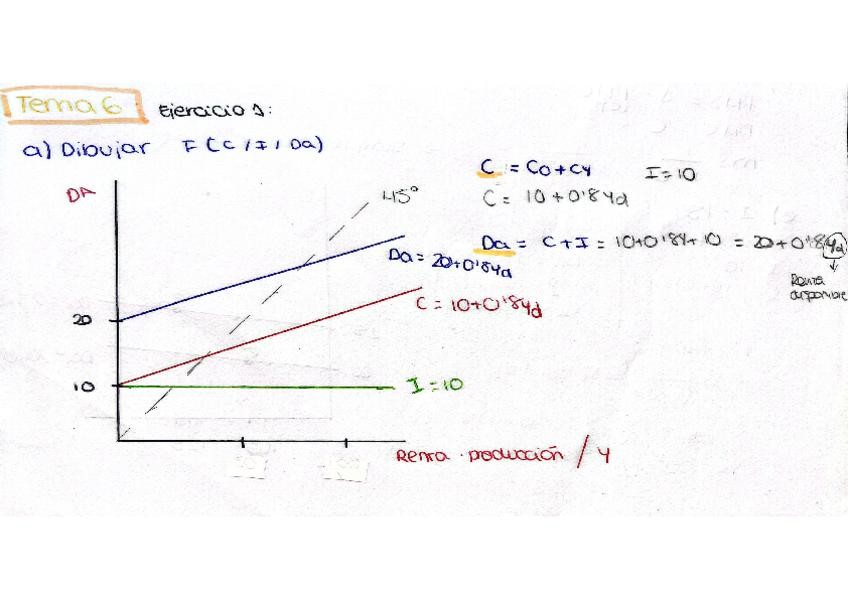 Tema 6 Ejercicio 1:
a) Dibujar F (C / I / Da)
C = Co + cy I = 10
C = 10 + 0'8yd
Da = C + I = 10 + 0'8y + 10 = 20 + 0'8yd
Renta
disponible
DA
45°
Da = 20 + 0'8yd
C = 10 + 0'8yd
20
10
I = 10
Renta · producción / Y